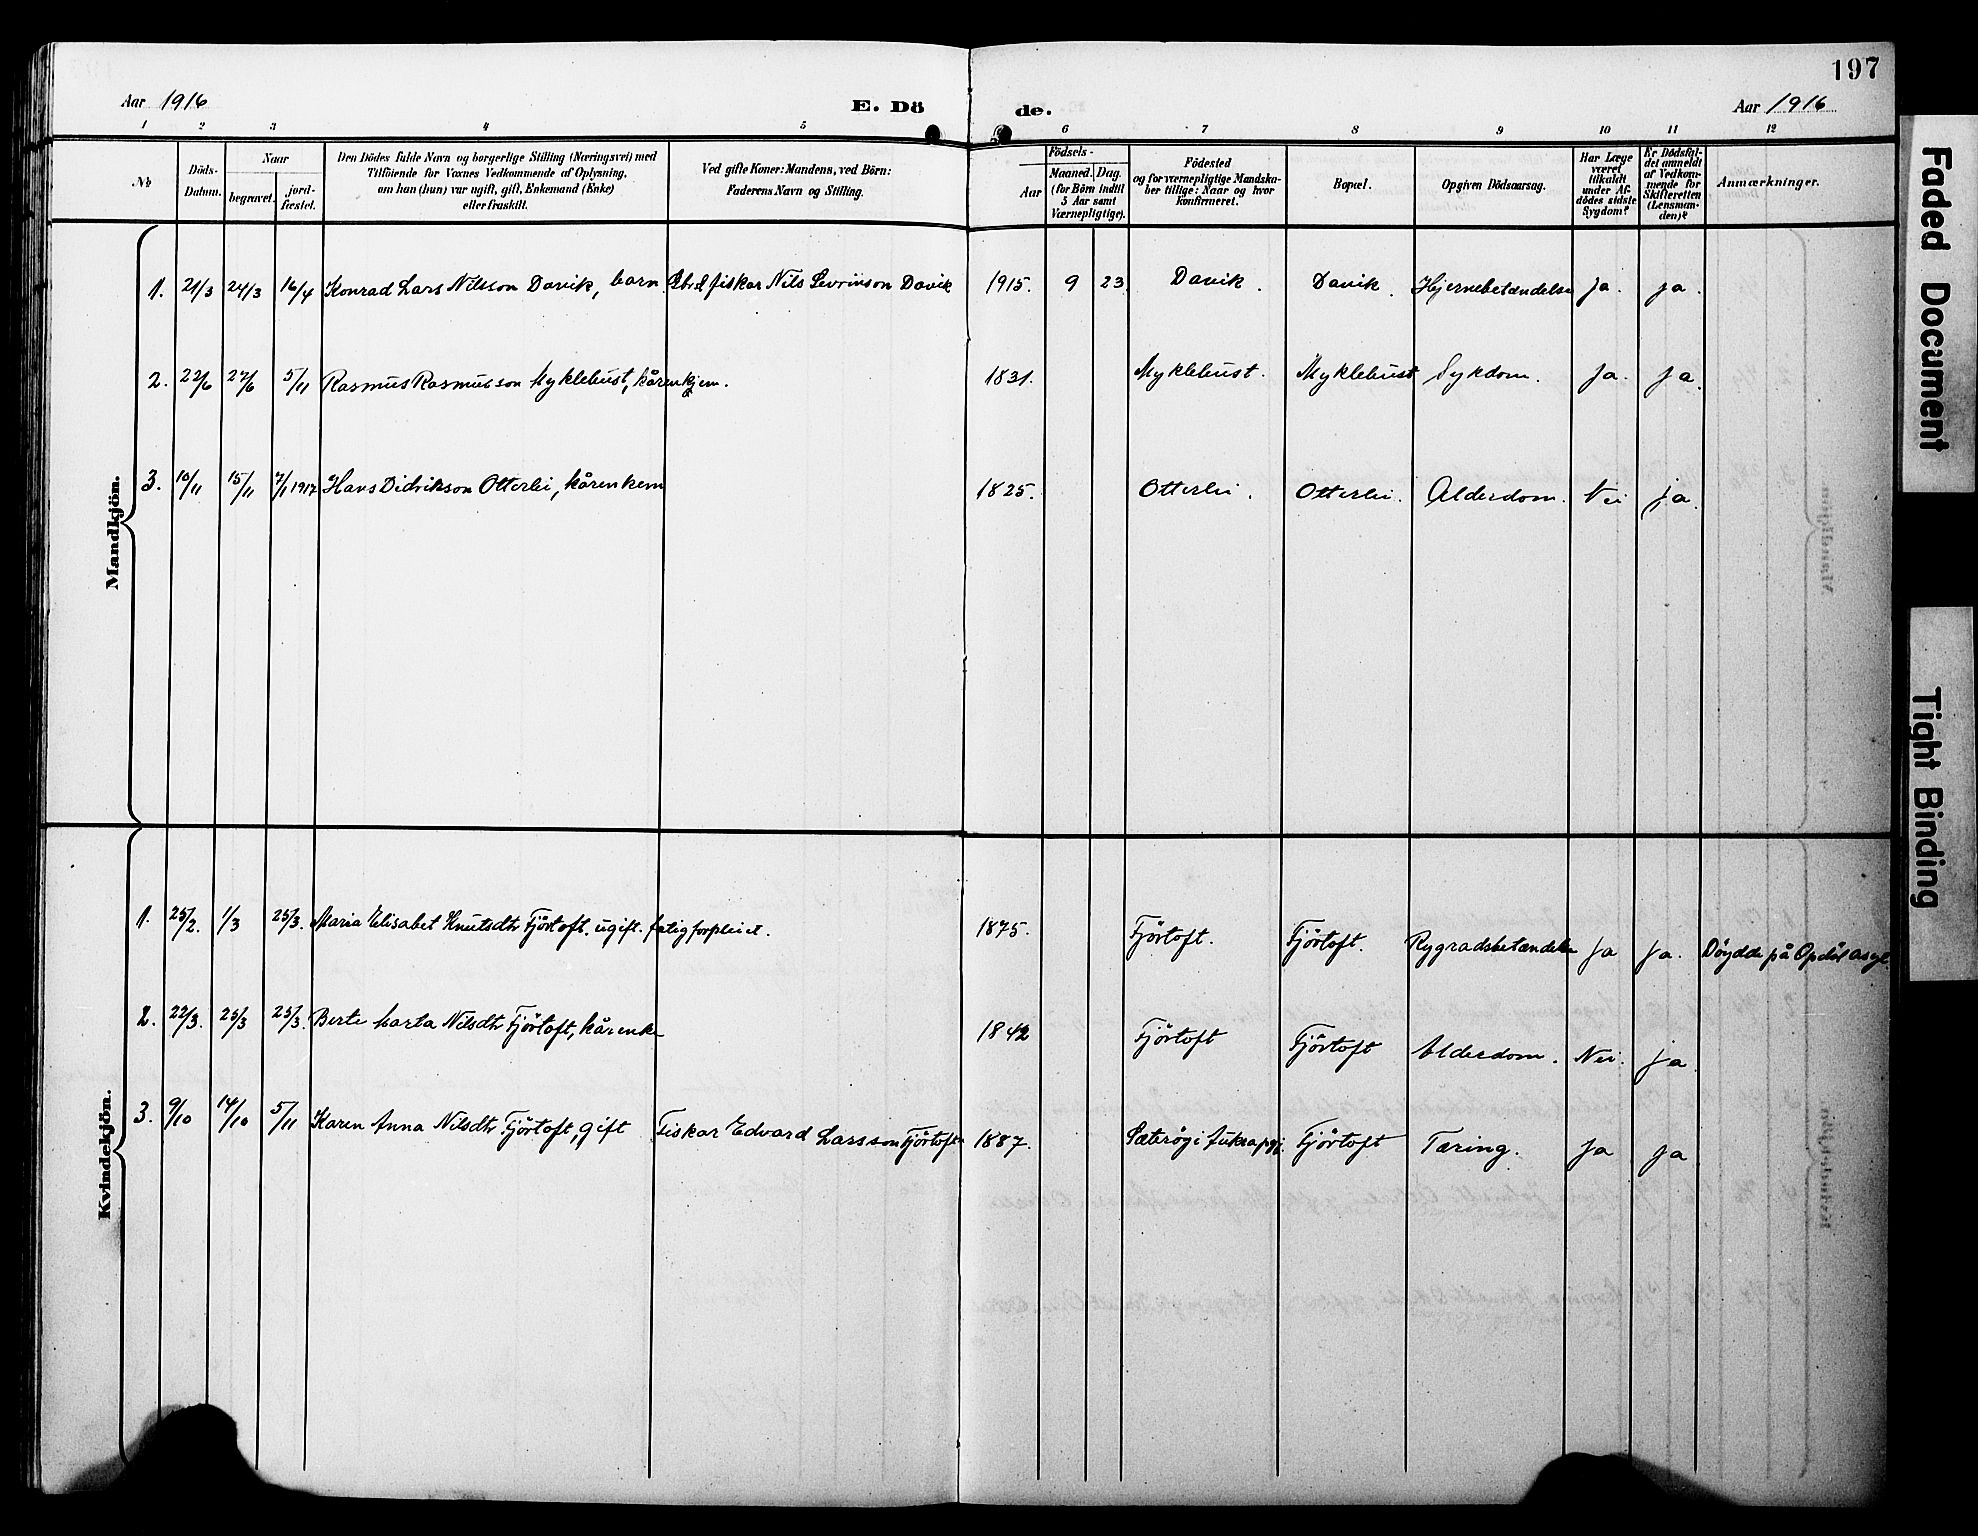 197
Aar 1916
E. Dö
de.
Aar 1916
1 2 3 4 5 6 7 8 9 10 11 12
No
Döds-
Datum.
Naar
begravet.
jord-
fæstet.
Den Dödes fulde Navn og borgerlige Stilling (Næringsvei) med
Tilföiende for Voxnes Vedkommende af Oplysning,
om han (hun) var ugift, gift, Enkemand (Enke)
eller fraskilt.
Ved gifte Koner: Mandens, ved Börn:
Faderens Navn og Stilling.
Födsels-
Aar
Maaned.
Dag.
(for Börn indtil
5 Aar samt
Værnepligtige).
Födested
og for værnepligtige Mandska-
ber tillige: Naar og hvor
konfirmeret.
Bopæl.
Opgiven Dödsaarsag.
Har Læge
været
tilkaldt
under Af-
dödes sidste
Sygdom?
Er Dödsfal-
det anmeldt
af Vedkom-
mende for
Skifteretten
(Lensman-
den)?
Anmærkninger.
Mandkjön.
1. 21/3 24/3 16/4 Konrad Lars Nilsson Davik, barn fiskar Nils Sevrinson Davik 1915. 9 23 Davik. Davik. Hjernebetændelse Ja. ja.
2. 22/6 27/6 5/11 Rasmus Rasmusson Myklebust, kårenkjem. 1831. Myklebust. Myklebust Sykdom. Ja. ja.
3. 10/11 15/11 7/1 1917 Hans Didrikson Otterlei, kårenkem 1825. Otterlei. Otterlei. Alderdom. Nei ja.
Kvindekjön.
1. 25/2. 1/3 25/3. Maria Elisabet Knutsdtr Fjörtoft. ugift. fatigforpleiet. 1875. Fjörtoft. Fjörtoft. Rygradsbetændelse Ja Ja. Döydde på Opdöl asyl.
2. 22/3. 25/3 25/3. Berte Marta Nilsdtr Fjörtoft, kårenke 1842 Fjörtoft Fjörtoft Alderdom. Nei. ja
3. 9/10 14/10 5/11 Karen Anna Nilsdtr Fjörtoft, gift Fiskar Edvard Larsson Fjörtoft 1887. Sæteröy i Aukra pgj. Fjörtoft Tæring. Ja ja
Faded Document
Tight Binding